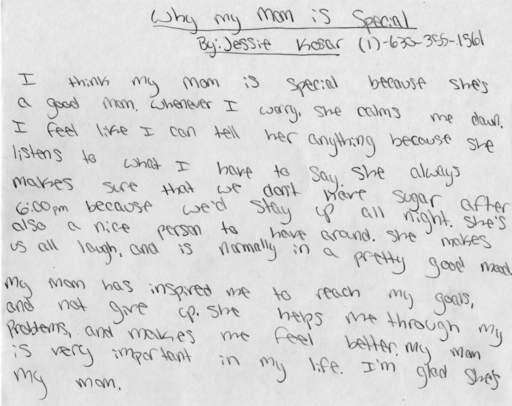 Why my mom is Special
By: Jessie Kosar (1)-633-355-1561
I think my mom is special because she's
a good mom. Whenever I worry, she calms me down.
I feel like I can tell her anything because she
listens to what I have to say. She always
makes sure that we don't have sugar after
6:00pm because we'd stay up all night. She's
also a nice person to have around. She makes
us all laugh, and is normally in a pretty good mood
My mom has inspired me to reach my goals,
and not give up. She helps me through my
problems, and makes me feel better. My mom
is very important in my life. I'm glad she's
my mom.